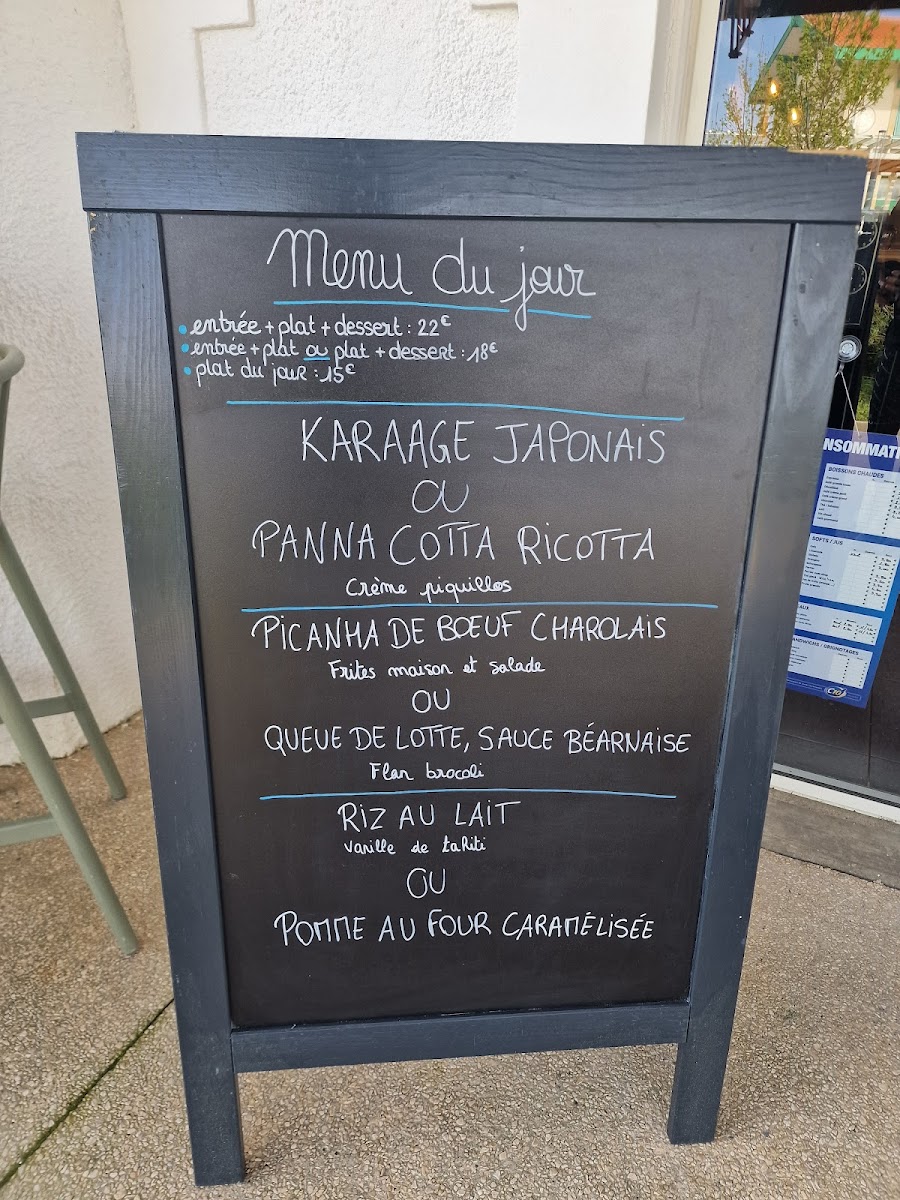 Menu du jour
• entrée + plat + dessert : 22€
• entrée + plat ou plat + dessert : 18€
• plat du jour : 15€
KARAAGE JAPONAIS
OU
PANNA COTTA RICOTTA
Crème piquillos
PICANHA DE BOEUF CHAROLAIS
Frites maison et salade
OU
QUEUE DE LOTTE, SAUCE BÉARNAISE
Flan brocoli
RIZ AU LAIT
vanille de tahiti
OU
POMME AU FOUR CARAMÉLISÉE
NSOMMATI
BOISSONS CHAUDES
SOFTS / JUS